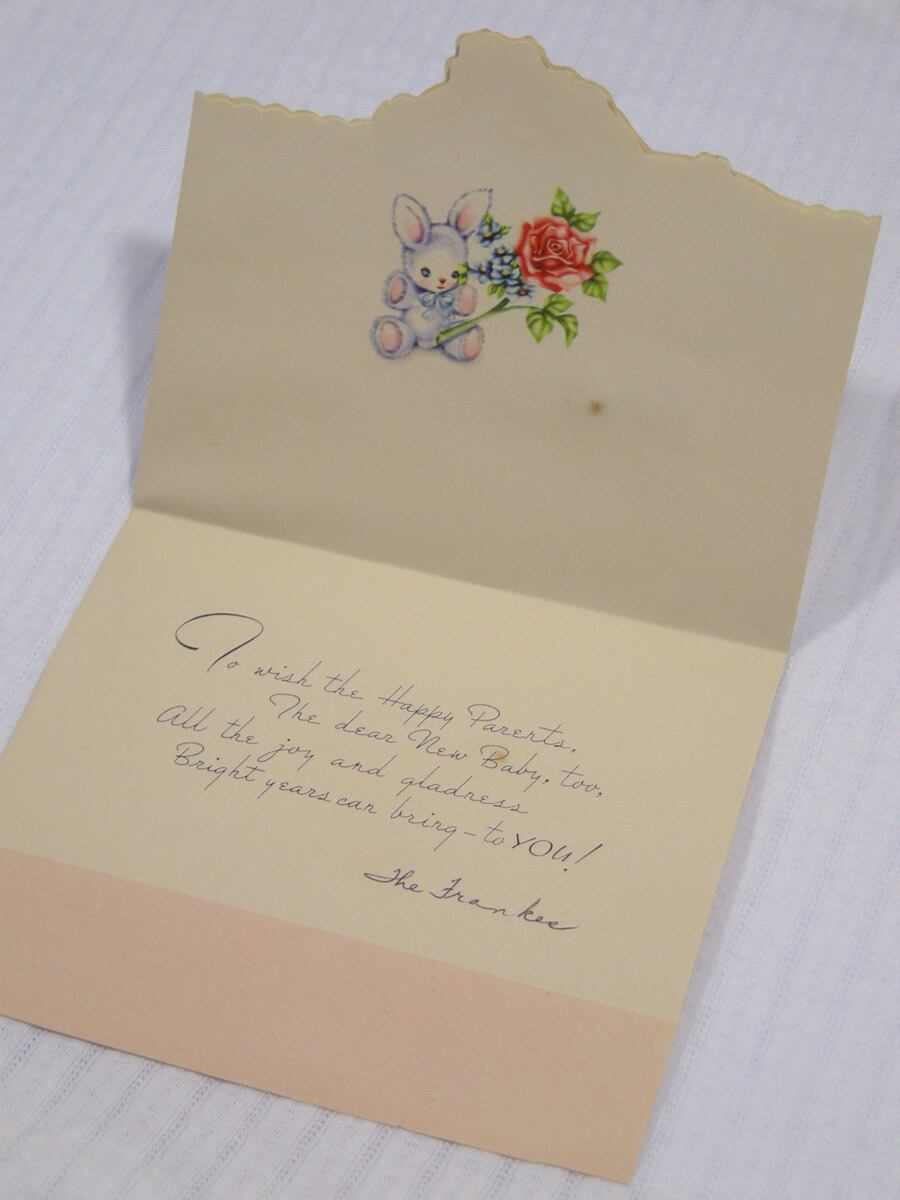 To wish the Happy Parents,
The dear New Baby, too,
All the joy and gladness
Bright years can bring - to YOU!
The Frankes